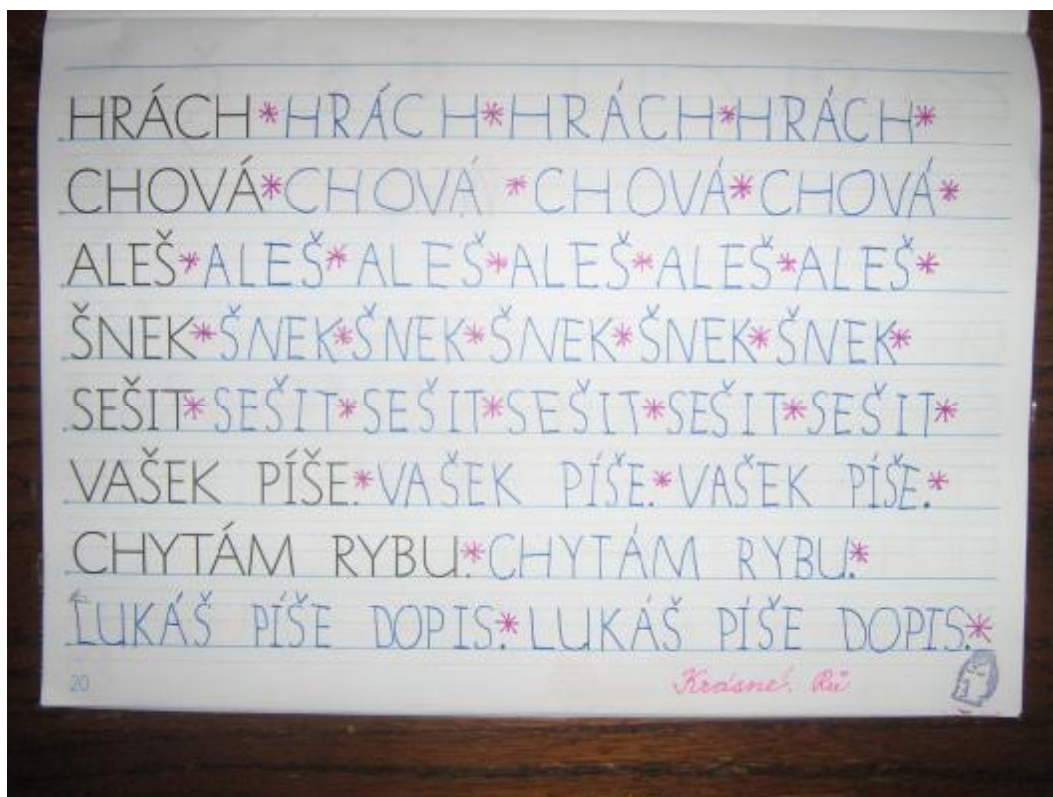 HRÁCH*HRÁCH*HRÁCH*HRÁCH*
CHOVÁ*CHOVÁ*CHOVÁ*CHOVÁ*
ALEŠ*ALEŠ*ALEŠ*ALEŠ*ALEŠ*ALEŠ*
ŠNEK*ŠNEK*ŠNEK*ŠNEK*ŠNEK*ŠNEK*
SEŠIT*SEŠIT*SEŠIT*SEŠIT*SEŠIT*SEŠIT*
VAŠEK PÍŠE.*VAŠEK PÍŠE.*VAŠEK PÍŠE.*
CHYTÁM RYBU.*CHYTÁM RYBU.*
LUKÁŠ PÍŠE DOPIS.*LUKÁŠ PÍŠE DOPIS.*
20 Krásné!